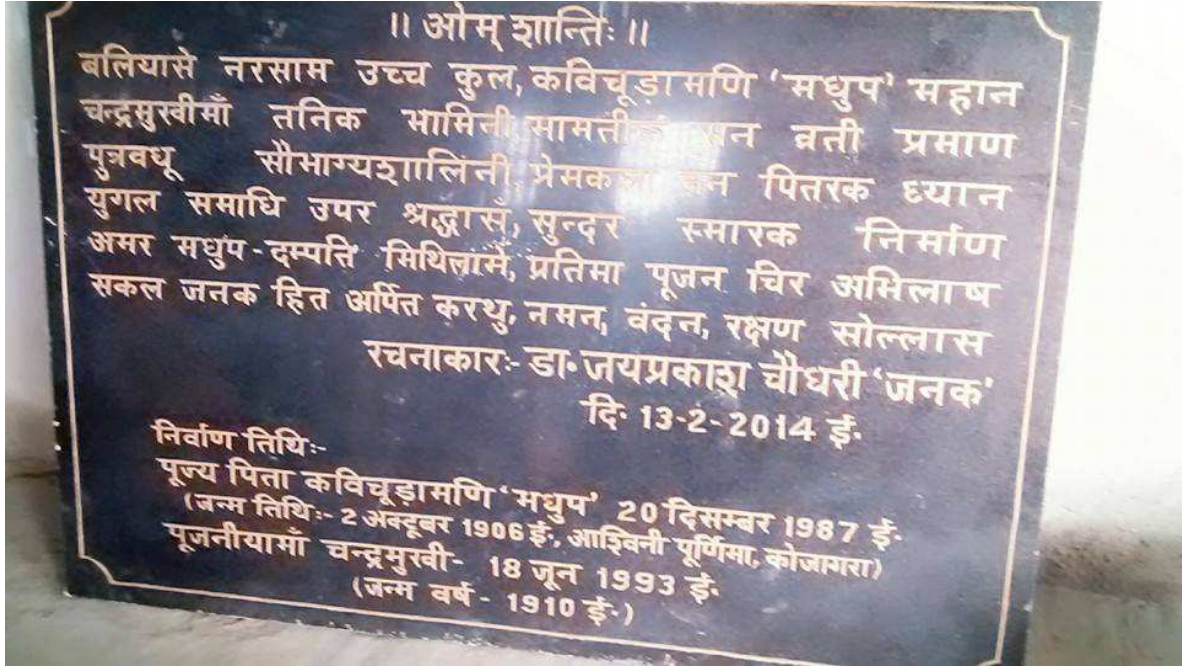 ॥ ओम् शान्तिः ॥
बलियासे नरसाम उच्च कुल, कविचूड़ामणि 'मधुप' महान
चन्द्रमुखीमाँ तनिक भामिनी, व्रती प्रमाण
पुत्रवधू सौभाग्यशालिनी, प्रेमकला पितरक ध्यान
युगल समाधि उपर श्रद्धासँ, सुन्दर स्मारक निर्माण
अमर मधुप-दम्पति मिथिलामें, प्रतिमा पूजन चिर अभिलाष
सकल जनक हित अर्पित करथु, नमन, वंदन, रक्षण सोल्लास
रचनाकारः- डा॰ जयप्रकाश चौधरी 'जनक'
दि॰ 13-2-2014 ई॰
निर्वाण तिथिः-
पूज्य पिता कविचूड़ामणि 'मधुप' 20 दिसम्बर 1987 ई॰
(जन्म तिथिः- 2 अक्टूबर 1906 ई॰, आश्विनी पूर्णिमा, कोजागरा)
पूजनीयामाँ चन्द्रमुखी- 18 जून 1993 ई॰
(जन्म वर्ष - 1910 ई॰)